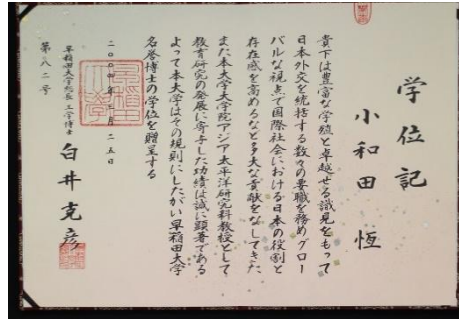 学位記
小和田 恆
貴下は豊富な学殖と卓越せる識見をもって
日本外交を統括する数々の要職を務めグロー
バルな視点で国際社会における日本の役割と
存在感を高めるなど多大な貢献をなしてきた
また本大学大学院アジア太平洋研究科教授として
教育研究の発展に寄与した功績は誠に顕著である
よって本大学はその規則にしたがい早稲田大学
名誉博士の学位を贈呈する
二〇〇四年 月二五日
早稲田大学総長 工学博士 白井克彦
第八二号